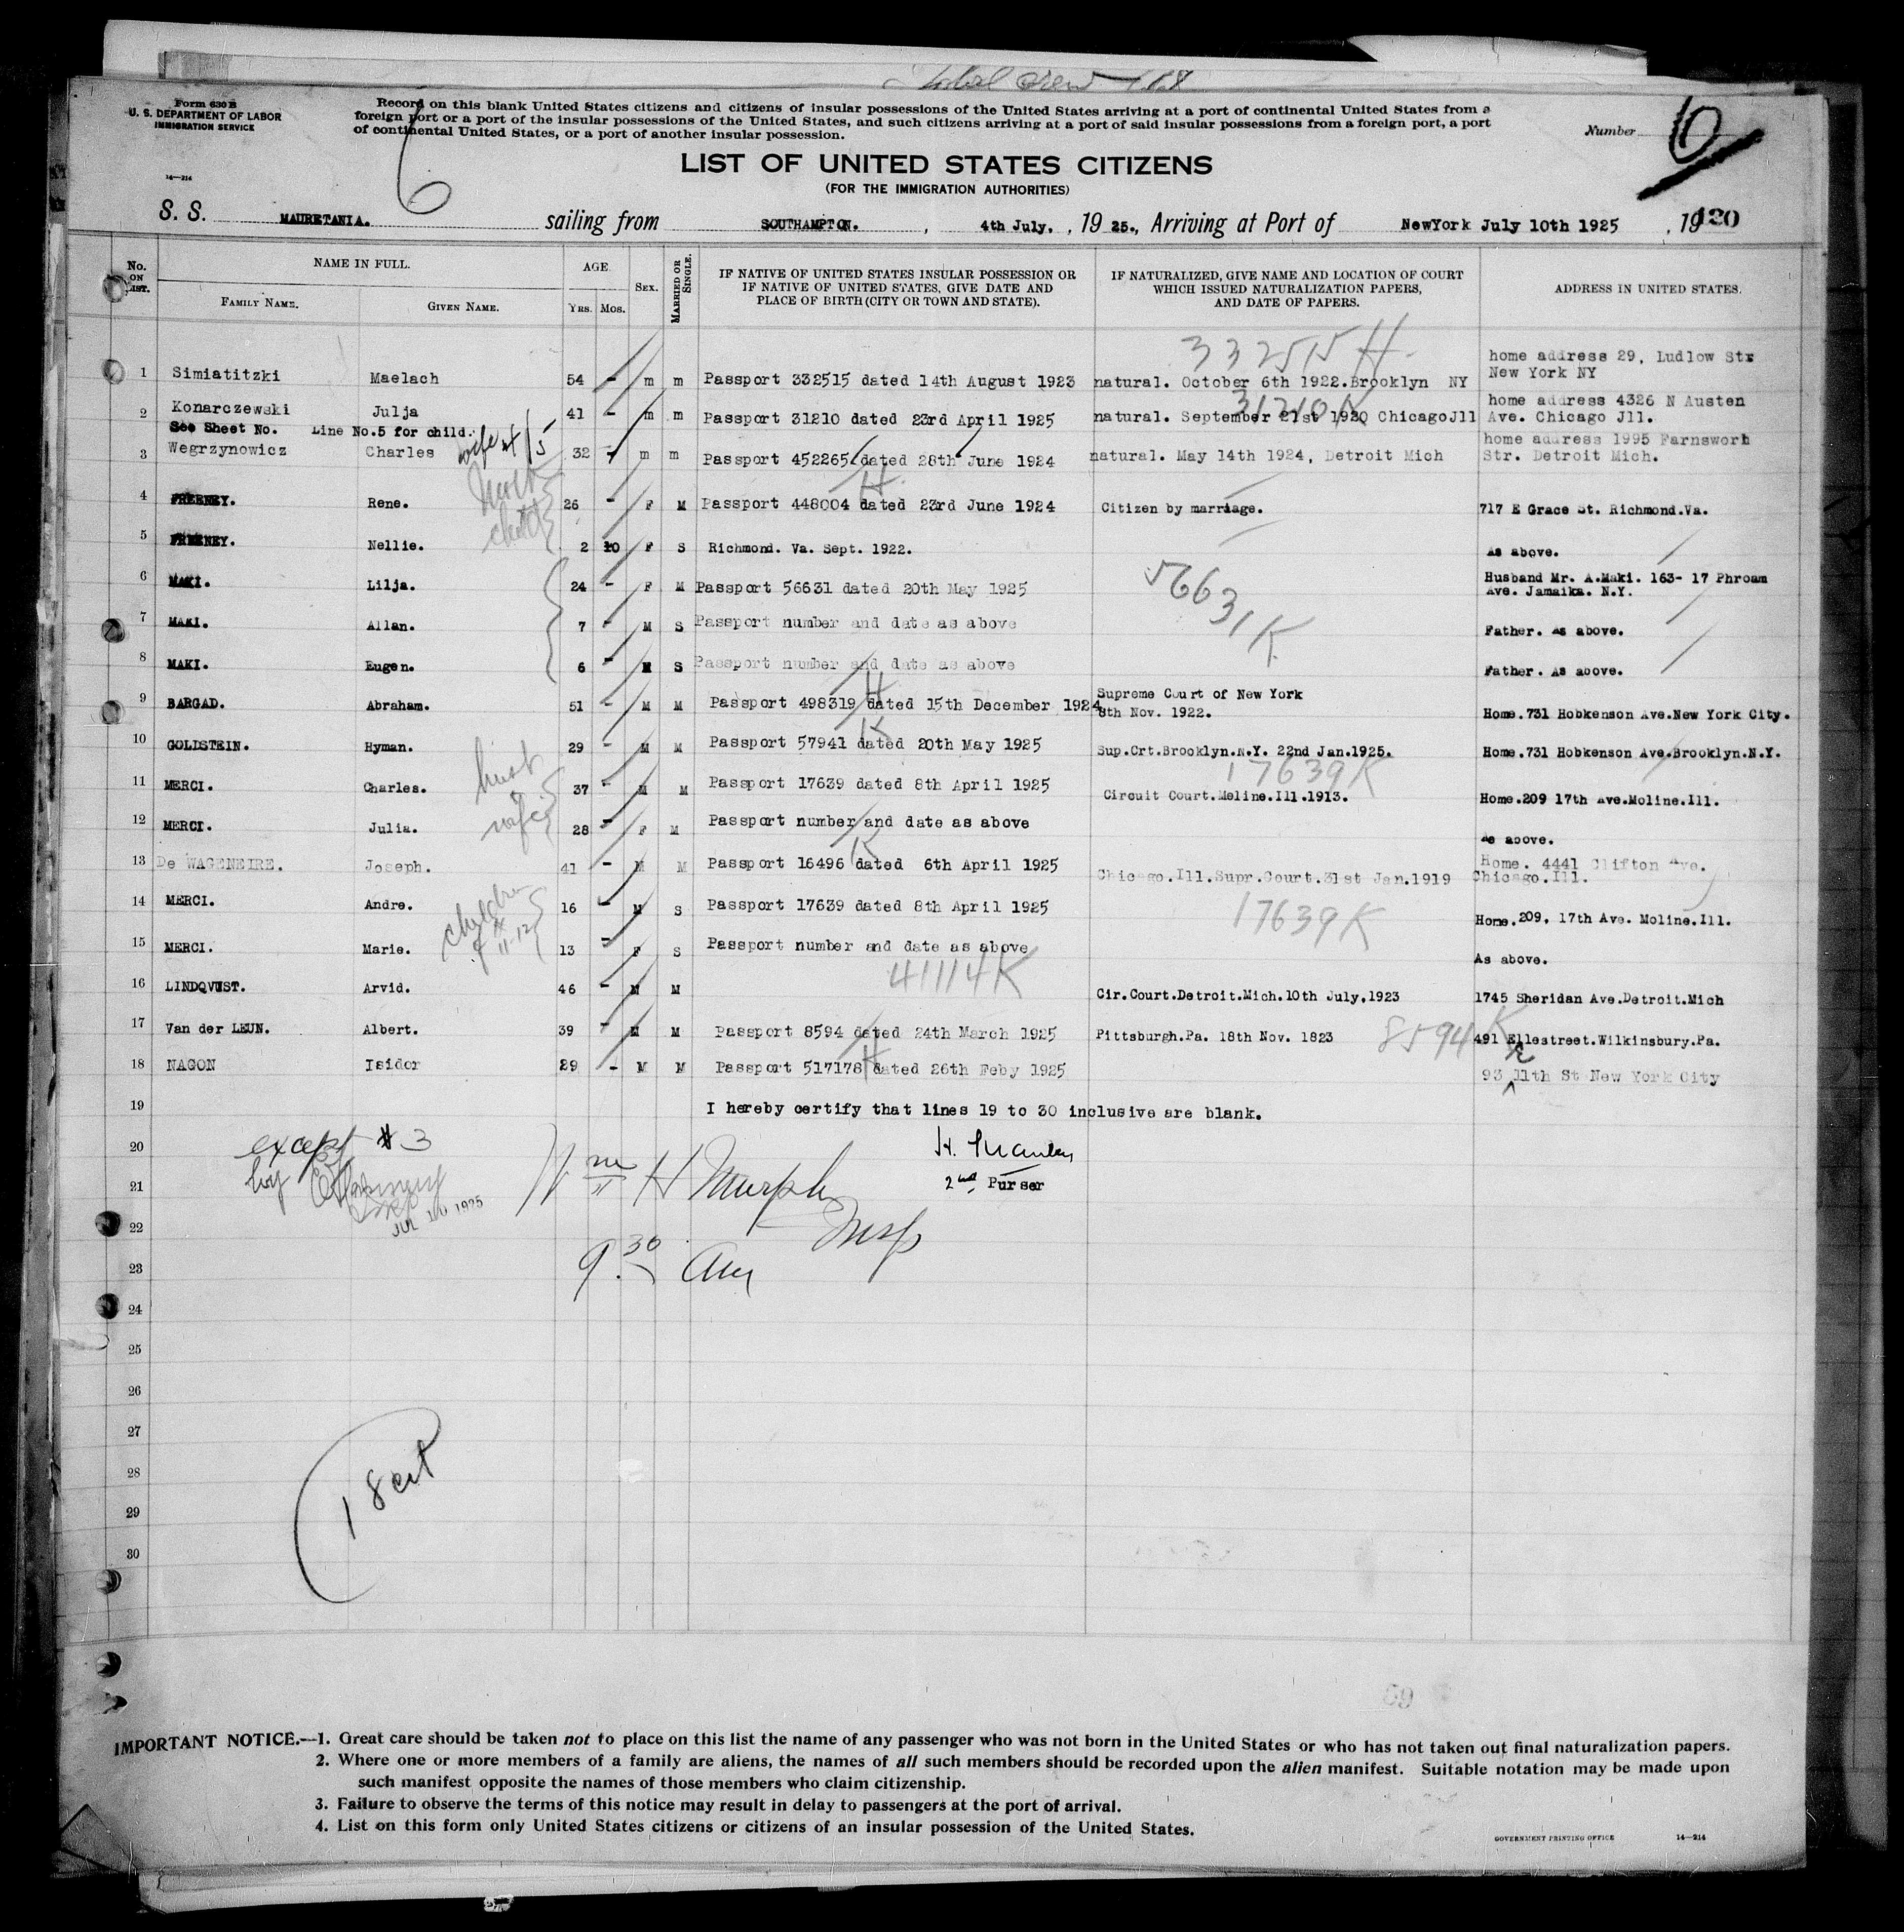 Total Crew
Form 630 B
U. S. DEPARTMENT OF LABOR
IMMIGRATION SERVICE
14—214
Record on this blank United States citizens and citizens of insular possessions of the United States arriving at a port of continental United States from a
foreign port or a port of the insular possessions of the United States, and such citizens arriving at a port of said insular possessions from a foreign port, a port
of continental United States, or a port of another insular possession.
Number 6
6
LIST OF UNITED STATES CITIZENS
(FOR THE IMMIGRATION AUTHORITIES)
S. S. MAURETANIA. sailing from SOUTHAMPTON. , 4th July. , 19 25., Arriving at Port of NewYork July 10th 1925 , 19 120
No. ON LIST. NAME IN FULL. FAMILY NAME. GIVEN NAME. AGE YRS. MOS. SEX. MARRIED OR SINGLE.
IF NATIVE OF UNITED STATES INSULAR POSSESSION OR
IF NATIVE OF UNITED STATES, GIVE DATE AND
PLACE OF BIRTH (CITY OR TOWN AND STATE).
IF NATURALIZED, GIVE NAME AND LOCATION OF COURT
WHICH ISSUED NATURALIZATION PAPERS,
AND DATE OF PAPERS.
ADDRESS IN UNITED STATES.
332515 H
home address 29, Ludlow Str
1 Simiatitzki Maelach 54 - m m Passport 332515 dated 14th August 1923 natural. October 6th 1922.Brooklyn NY New York NY
31210 K
home address 4326 N Austen
2 Konarczewski Julja 41 - m m Passport 31210 dated 23rd April 1925 natural. September 21st 1920 ChicagoJll Ave. Chicago Jll.
See Sheet No. Line No.5 for child. wife # 15
home address 1995 Farnsworh
3 Wegrzynowicz Charles 32 - m m Passport 452265 dated 28th June 1924 natural. May 14th 1924, Detroit Mich Str. Detroit Mich.
H
4 FREENEY. Rene. 26 - F M Passport 448004 dated 23rd June 1924 Citizen by marriage. 717 E Grace St. Richmond.Va.
5 FREENEY. Nellie. 2 10 F S Richmond. Va. Sept. 1922. As above.
56631 K
Husband Mr. A.Maki. 163- 17 Phroam
6 MAKI. Lilja. 24 - F M Passport 56631 dated 20th May 1925 Ave. Jamaika. N.Y.
7 MAKI. Allan. 7 - M S Passport number and date as above Father. As above.
8 MAKI. Eugen. 6 - M S Passport number and date as above Father. As above.
H
Supreme Court of New York
9 BARGAD. Abraham. 51 - M M Passport 498319 dated 15th December 1924 8th Nov. 1922. Home.731 Hobkenson Ave.New York City.
K
10 GOLDSTEIN. Hyman. 29 - M M Passport 57941 dated 20th May 1925 Sup.Crt.Brooklyn.N.Y. 22nd Jan.1925. Home.731 Hobkenson Ave.Brooklyn.N.Y.
17639 K
11 MERCI. Charles. 37 - M M Passport 17639 dated 8th April 1925 Circuit Court.Meline.Ill.1913. Home.209 17th Ave.Moline.Ill.
wife
12 MERCI. Julia. 28 - F M Passport number and date as above As above.
K
13 De WAGENEIRE. Joseph. 41 - M M Passport 16496 dated 6th April 1925 Chicago.Ill.Supr.Court.31st Jan.1919 Home. 4441 Clifton Ave.
Chicago.Ill.
children
of # 11-12
14 MERCI. Andre. 16 - M S Passport 17639 dated 8th April 1925 17639 K Home.209. 17th Ave. Moline.Ill.
15 MERCI. Marie. 13 - F S Passport number and date as above As above.
41114 K
16 LINDQVUST. Arvid. 46 - M M Cir.Court.Detroit.Mich.10th July,1923 1745 Sheridan Ave.Detroit.Mich
17 Van der LEUN. Albert. 39 - M M Passport 8594 dated 24th March 1925 Pittsburgh.Pa. 18th Nov. 1823 8594 K 491 Ellestreet.Wilkinsbury.Pa.
H
18 NAGON Isidor 29 - M M Passport 517178 dated 26th Feby 1925 93 E 11th St New York City
19 I hereby certify that lines 19 to 30 inclusive are blank.
20 except # 3
by
JUL 10 1925
21 Wm H Murphy
Insp
H. Manley
2nd Purser
22
23 9.30 Am
24
25
26
27
28 18 cit
29
30
69
IMPORTANT NOTICE.—1. Great care should be taken not to place on this list the name of any passenger who was not born in the United States or who has not taken out final naturalization papers.
2. Where one or more members of a family are aliens, the names of all such members should be recorded upon the alien manifest. Suitable notation may be made upon
such manifest opposite the names of those members who claim citizenship.
3. Failure to observe the terms of this notice may result in delay to passengers at the port of arrival.
4. List on this form only United States citizens or citizens of an insular possession of the United States.
GOVERNMENT PRINTING OFFICE 14—214